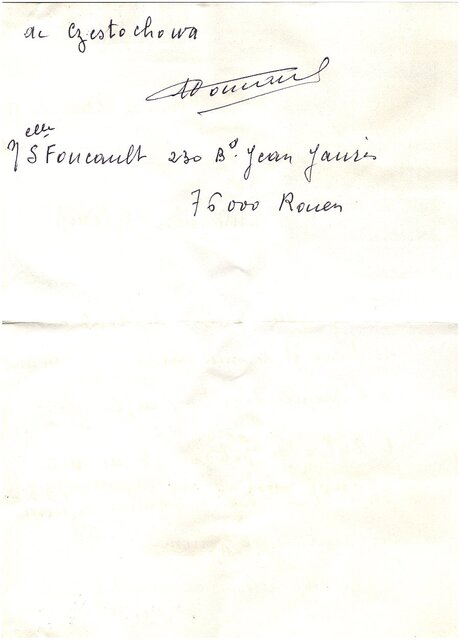 de Częstochowa
Melle S Foucault 230 Bd. Jean Jaurès
76000 Rouen